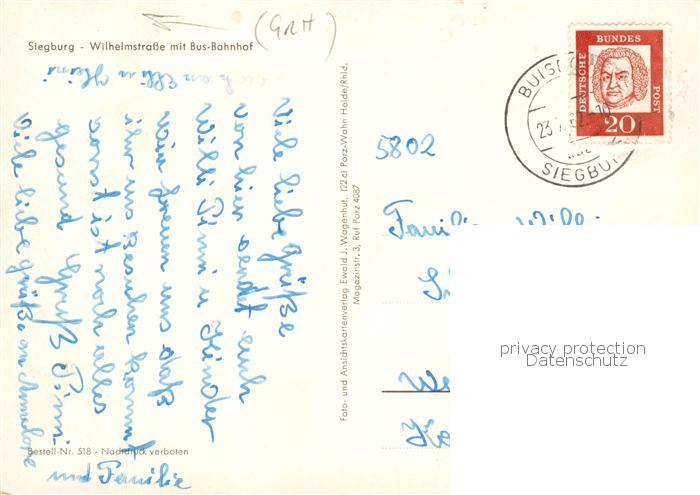 (GRH)
Siegburg - Wilhelmstraße mit Bus-Bahnhof
auch an Elli u Heini
Viele liebe Grüße
von hier sendet euch
Willi Timmi u Kinder
Wir freuen uns daß
ihr uns besuchen kommt
sonst ist noch alles
gesund Gruß Timmi
Viele liebe grüße an Annelore
und Familie
Bestell-Nr. 518 - Nachdruck verboten
Foto- und Ansichtskartenverlag Ewald J. Wagenhut, (22c) Porz-Wahn Heide/Rhld.
Magazinstr. 3, Ruf Porz 4087
DEUTSCHE
BUNDES
POST
20
BUISD
23.
SIEGBU
5802
Familie Willi
We
privacy protection
Datenschutz